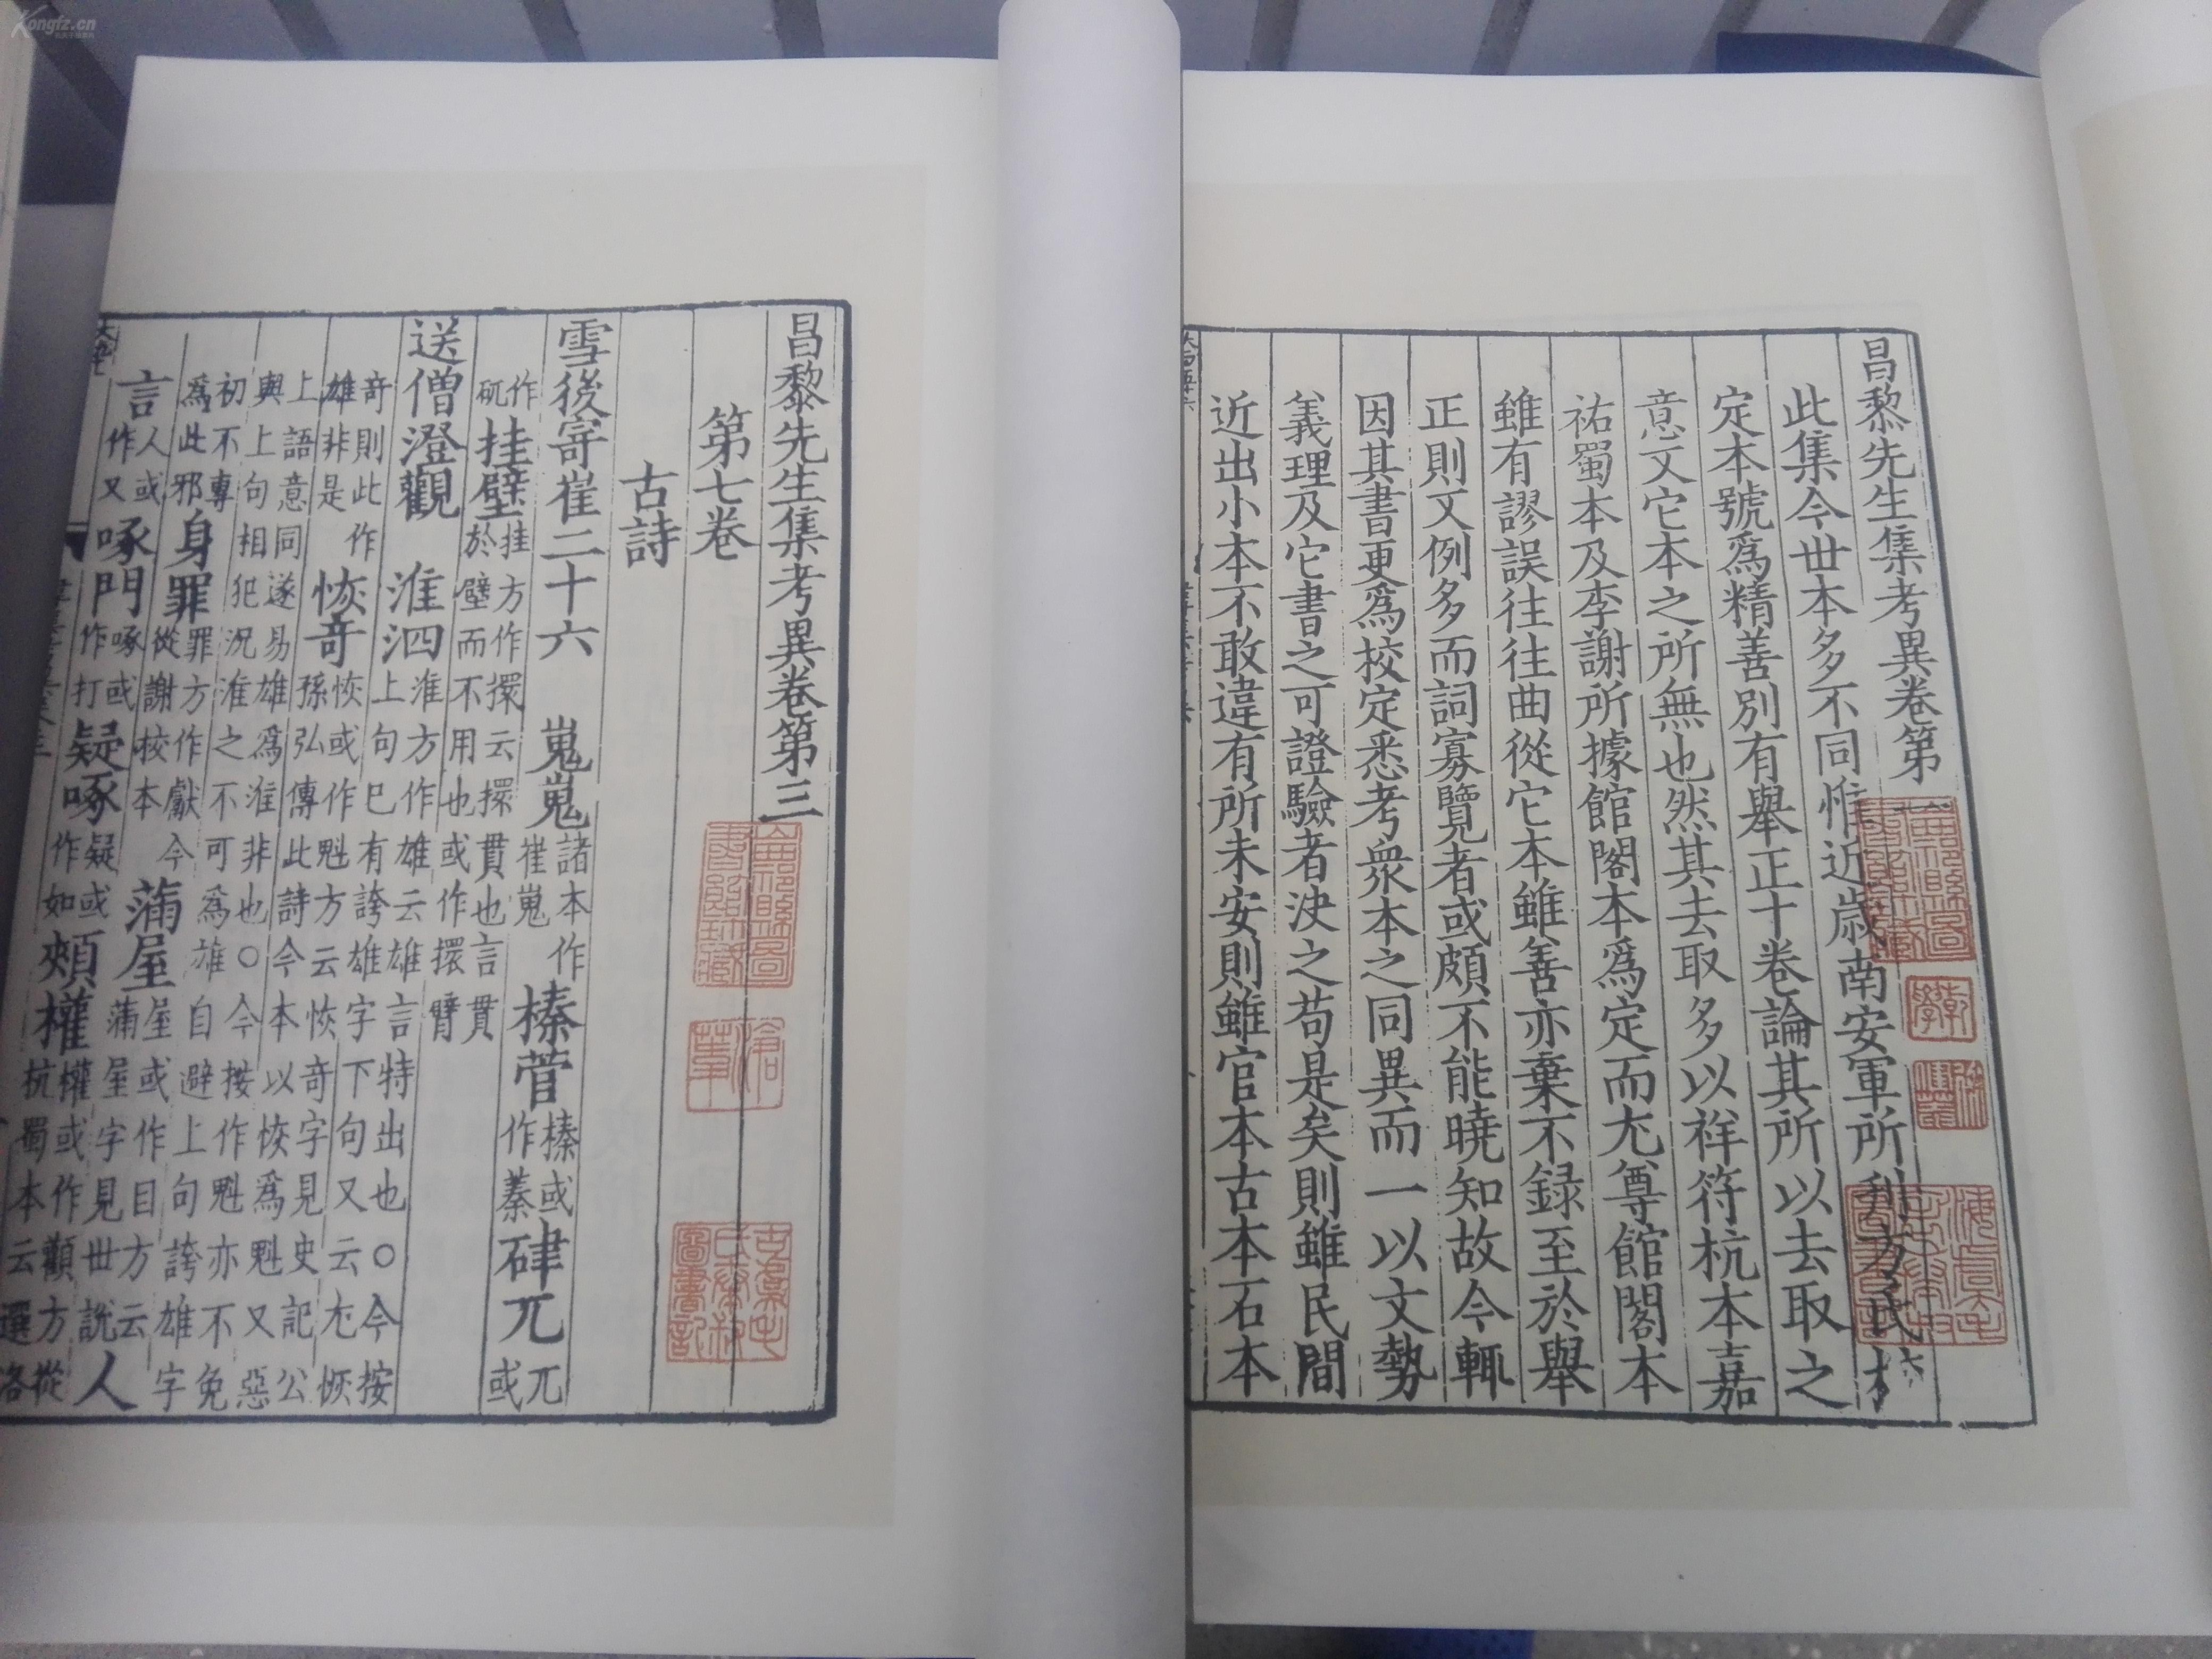 昌黎先生集考異卷第
此集今世本多不同惟近歲南安軍所刊方氏校
定本號爲精善別有舉正十卷論其所以去取之
意又它本之所無也然其去取多以祥符杭本嘉
祐蜀本及李謝所據館閣本爲定而尤尊館閣本
雖有謬誤往往曲從它本雖善亦棄不録至於舉
正則又例多而詞寡覽者或頗不能曉知故今輒
因其書更爲校定悉考衆本之同異而一以文勢
義理及它書之可證驗者決之苟是矣則雖民間
近出小本不敢違有所未安則雖官本古本石本
昌黎先生集考異卷第三
第七卷
古詩
雪後寄崔二十六 嵬嵬諸本作崔嵬 榛菅榛或作蓁 硉兀兀或
作矹 挂壁挂方作擐云擐貫也言貫於壁而不用也或作擐臂
送僧澄觀 淮泗淮方作雄云雄言特出也○今按上句已有誇雄字下句又云尤恢
奇則此作雄非是 恢奇恢或作魁方云恢奇字見史記公孫弘傳此詩今本以恢爲魁又惡
上語意同遂易雄爲淮非也○今按作魁亦不免與上句相犯況淮之不可爲雄自避上句誇雄字
初不專爲此邪 身罪罪方作獻今從謝校本 蒲屋屋或作目方云蒲屋字見世說 人
言人或作又 啄門啄或作打 疑啄疑或作如 頰權權或作顴方從杭蜀本云選洛
Kongfz.cn